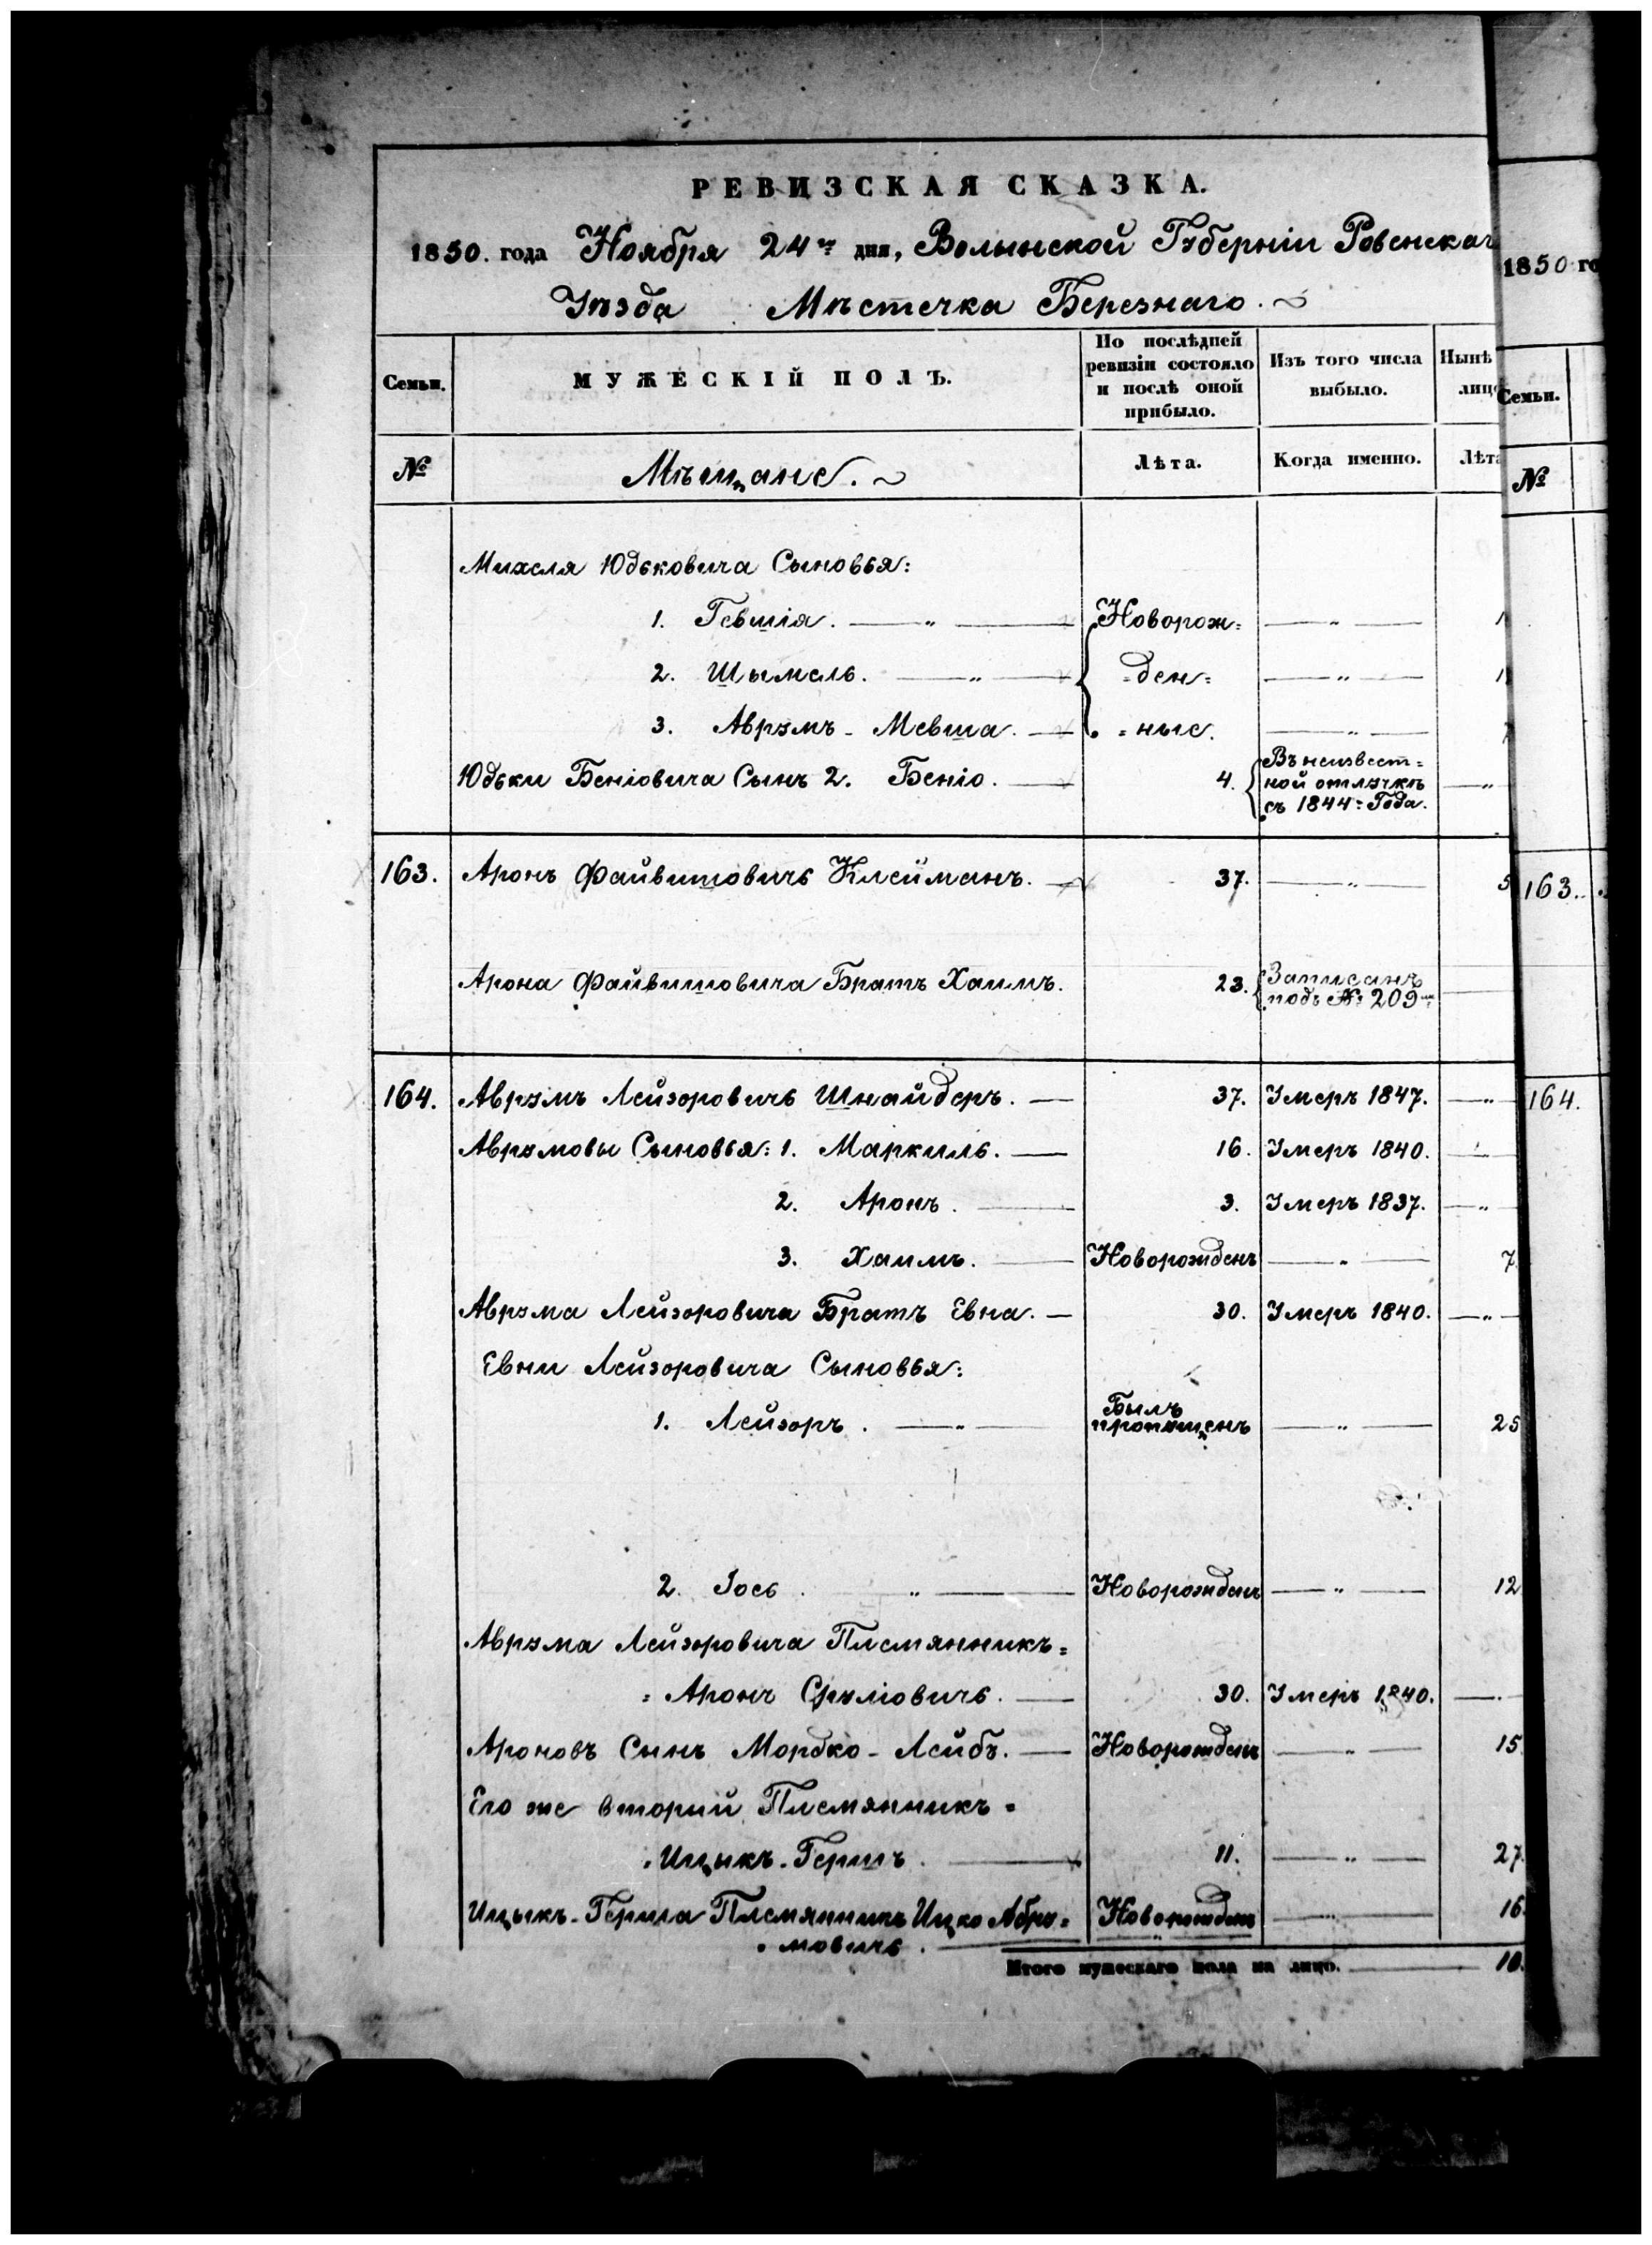 РЕВИЗСКАЯ СКАЗКА.
1850. года Ноября 24го дня, Волынской Губерніи Ровенскаг
Уѣзда Мѣстечка Березнаго.
Семьи.
МУЖЕСКІЙ ПОЛЪ.
По послѣдней ревизіи состояло и послѣ оной прибыло.
Изъ того числа выбыло.
Нынѣ лицо
№
Мѣщане.
Лѣта.
Когда именно.
Лѣта
Михеля Юдьковича Сыновья:
1. Гевшія. — „ — Новорож= — „ — 1
2. Шымель. — „ — =ден= — „ — 1
3. Аврумъ - Мевша. — =ные. — „ —
Юдьки Беніовича Сынъ 2. Беніо. — 4. Въ неизвест=
ной отлучкѣ
съ 1844= Года. — „
163. Аронъ Файвишовичь Клейманъ. — 37. — „ — 5
Арона Файвишовича Братъ Хаимъ. 23. Записанъ
подъ №: 209м —
164. Аврумъ Лейзоровичь Шнайдеръ. — 37. Умеръ 1847. — „ —
Аврумовы Сыновья: 1. Маркиль. — 16. Умеръ 1840. —
2. Аронъ. — 3. Умеръ 1837. — „
3. Хаимъ. — Новорожденъ — „ — 7
Аврума Лейзоровича Братъ Евна. — 30. Умеръ 1840. — „ —
Евни Лейзоровича Сыновья:
1. Лейзоръ. — „ — Былъ
пропущенъ — „ — 25
2. Іось. „ — Новорожденъ — „ — 12
Аврума Лейзоровича Племянникъ=
= Аронъ Сруліовичь. — 30. Умеръ 1840. —
Ароновъ Сынъ Мордко - Лейбъ. — Новорожденъ — „ — 15
Его же вторий Племянникъ =
Ицыкъ - Гершъ. — 11. — „ — 27.
Ицыкъ - Герша Племянникъ Ицко Абра=
мовичь. — Новорожденъ — „ — 16
Итого мужескаго пола на лицо. — 10.
1850 го
Семьи.
№
163.
164.